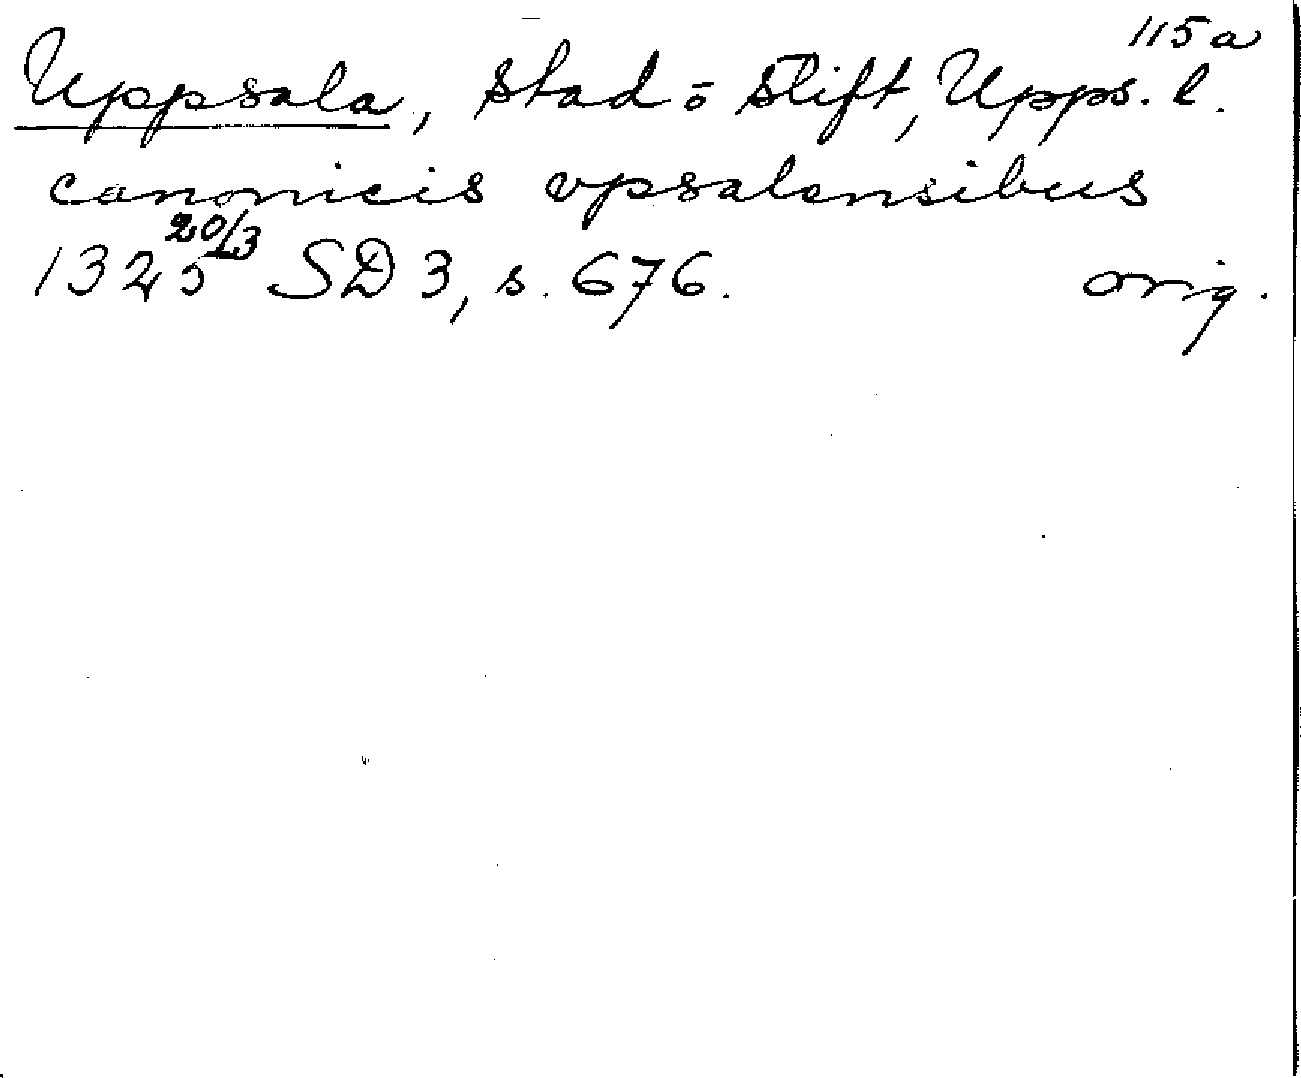 115 a
Uppsala, stad o stift, Upps. l.
canonicis vpsalensibus
1325 20/3 SD 3, s. 676. orig.